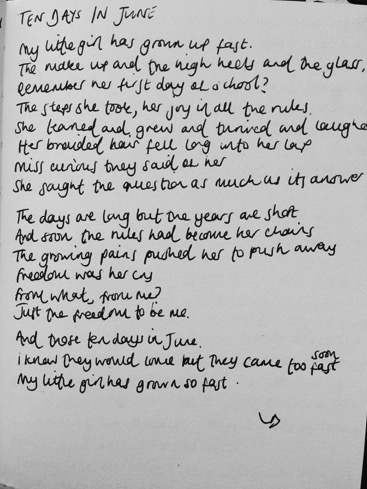 TEN DAYS IN JUNE
My little girl has grown up fast.
The make up and the high heels and the glass,
Remember her first day at school?
The steps she took, her joy in all the rules.
She learned and grew and twirled and laughed
Her braided hair fell long into her lap
Miss curious they said of her
She sought the question as much as its answer
The days are long but the years are short
And soon the rules had become her chains
The growing pains pushed her to push away
Freedom was her cry
From what, from me?
Just the freedom to be me.
And those ten days in June.
I knew they would come but they came too fast soon
My little girl has grown so fast.